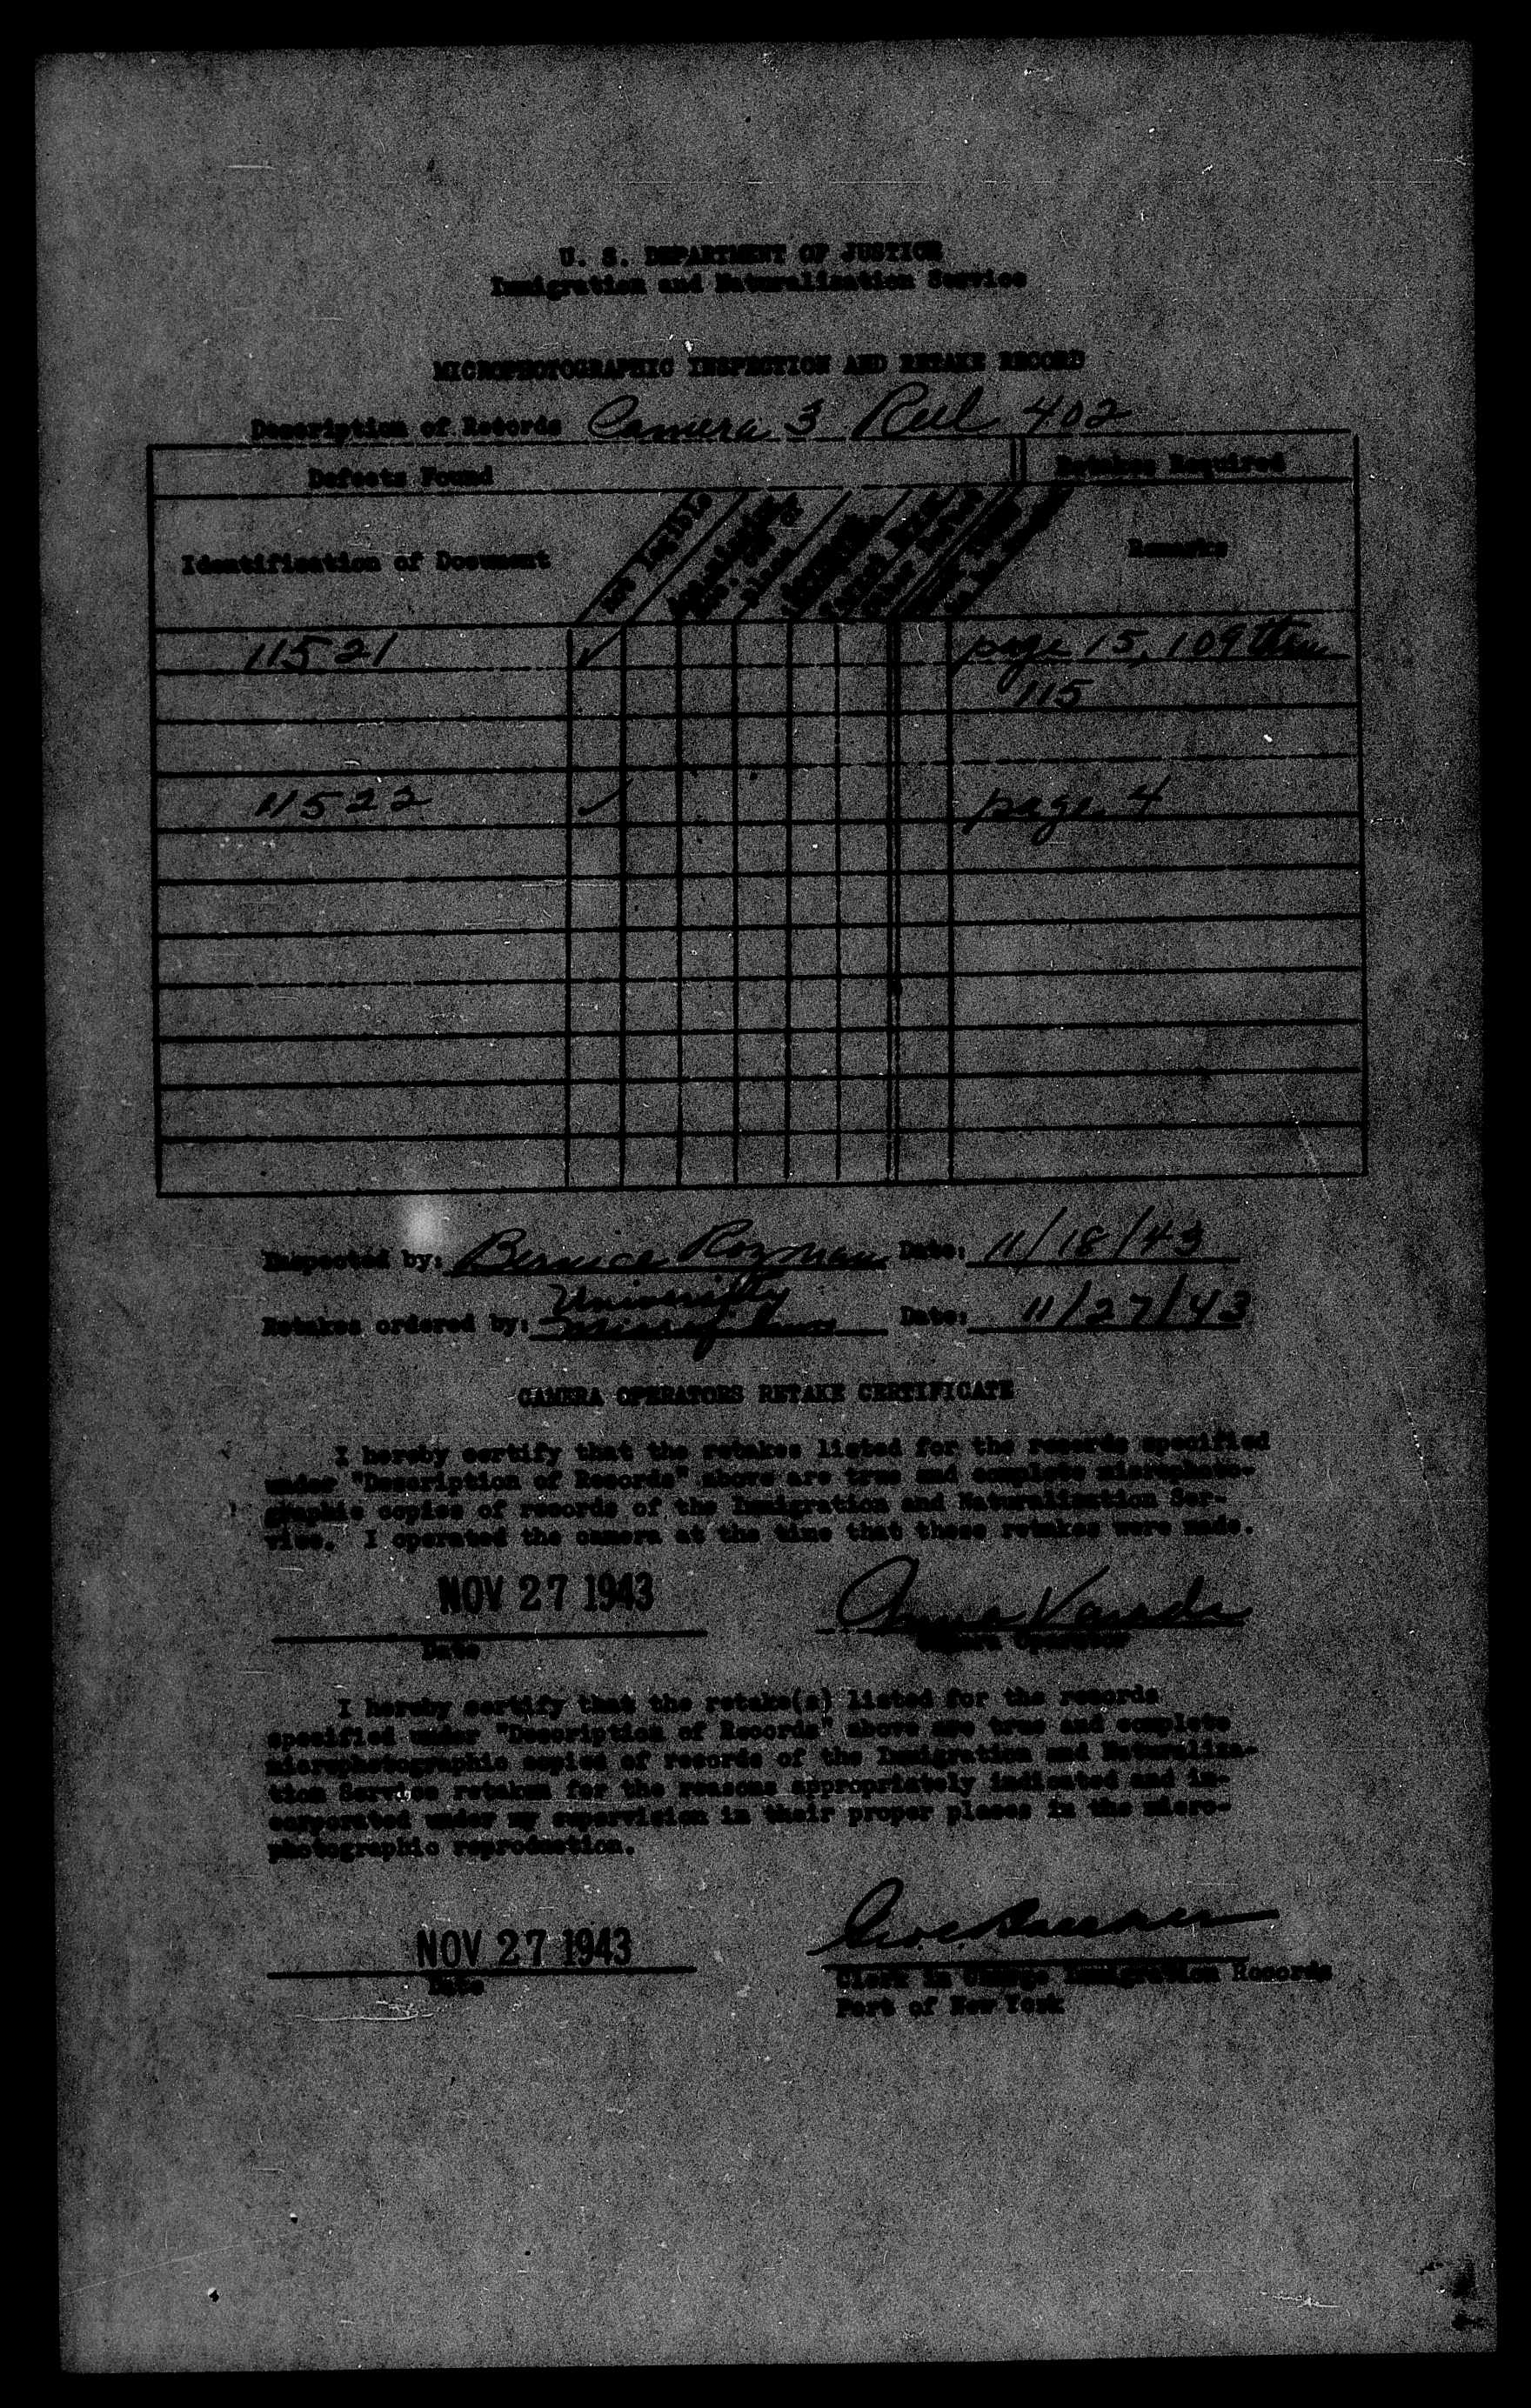 U. S. DEPARTMENT OF JUSTICE
Immigration and Naturalization Service
MICROPHOTOGRAPHIC INSPECTION AND RETAKE RECORD
Description of Records Camera 3 Reel 402
Defects Found
Retakes Required
Identification of Document
Not Legible
Remarks
11521 ✓ page 15, 109 thru
115
11522 ✓ page 4
Inspected by: Bernice Rozman Date: 11/18/43
University
Retakes ordered by: Microfilms Date: 11/27/43
CAMERA OPERATORS RETAKE CERTIFICATE
I hereby certify that the retakes listed for the records specified
under "Description of Records" above are true and complete microphoto-
graphic copies of records of the Immigration and Naturalization Ser-
vice. I operated the camera at the time that these retakes were made.
NOV 27 1943
Date
Camera Operator
I hereby certify that the retake(s) listed for the records
specified under "Description of Records" above are true and complete
microphotographic copies of records of the Immigration and Naturaliza-
tion Service retaken for the reasons appropriately indicated and in-
corporated under my supervision in their proper places in the micro-
photographic reproduction.
NOV 27 1943
Date
Clerk in Charge Immigration Records
Port of New York